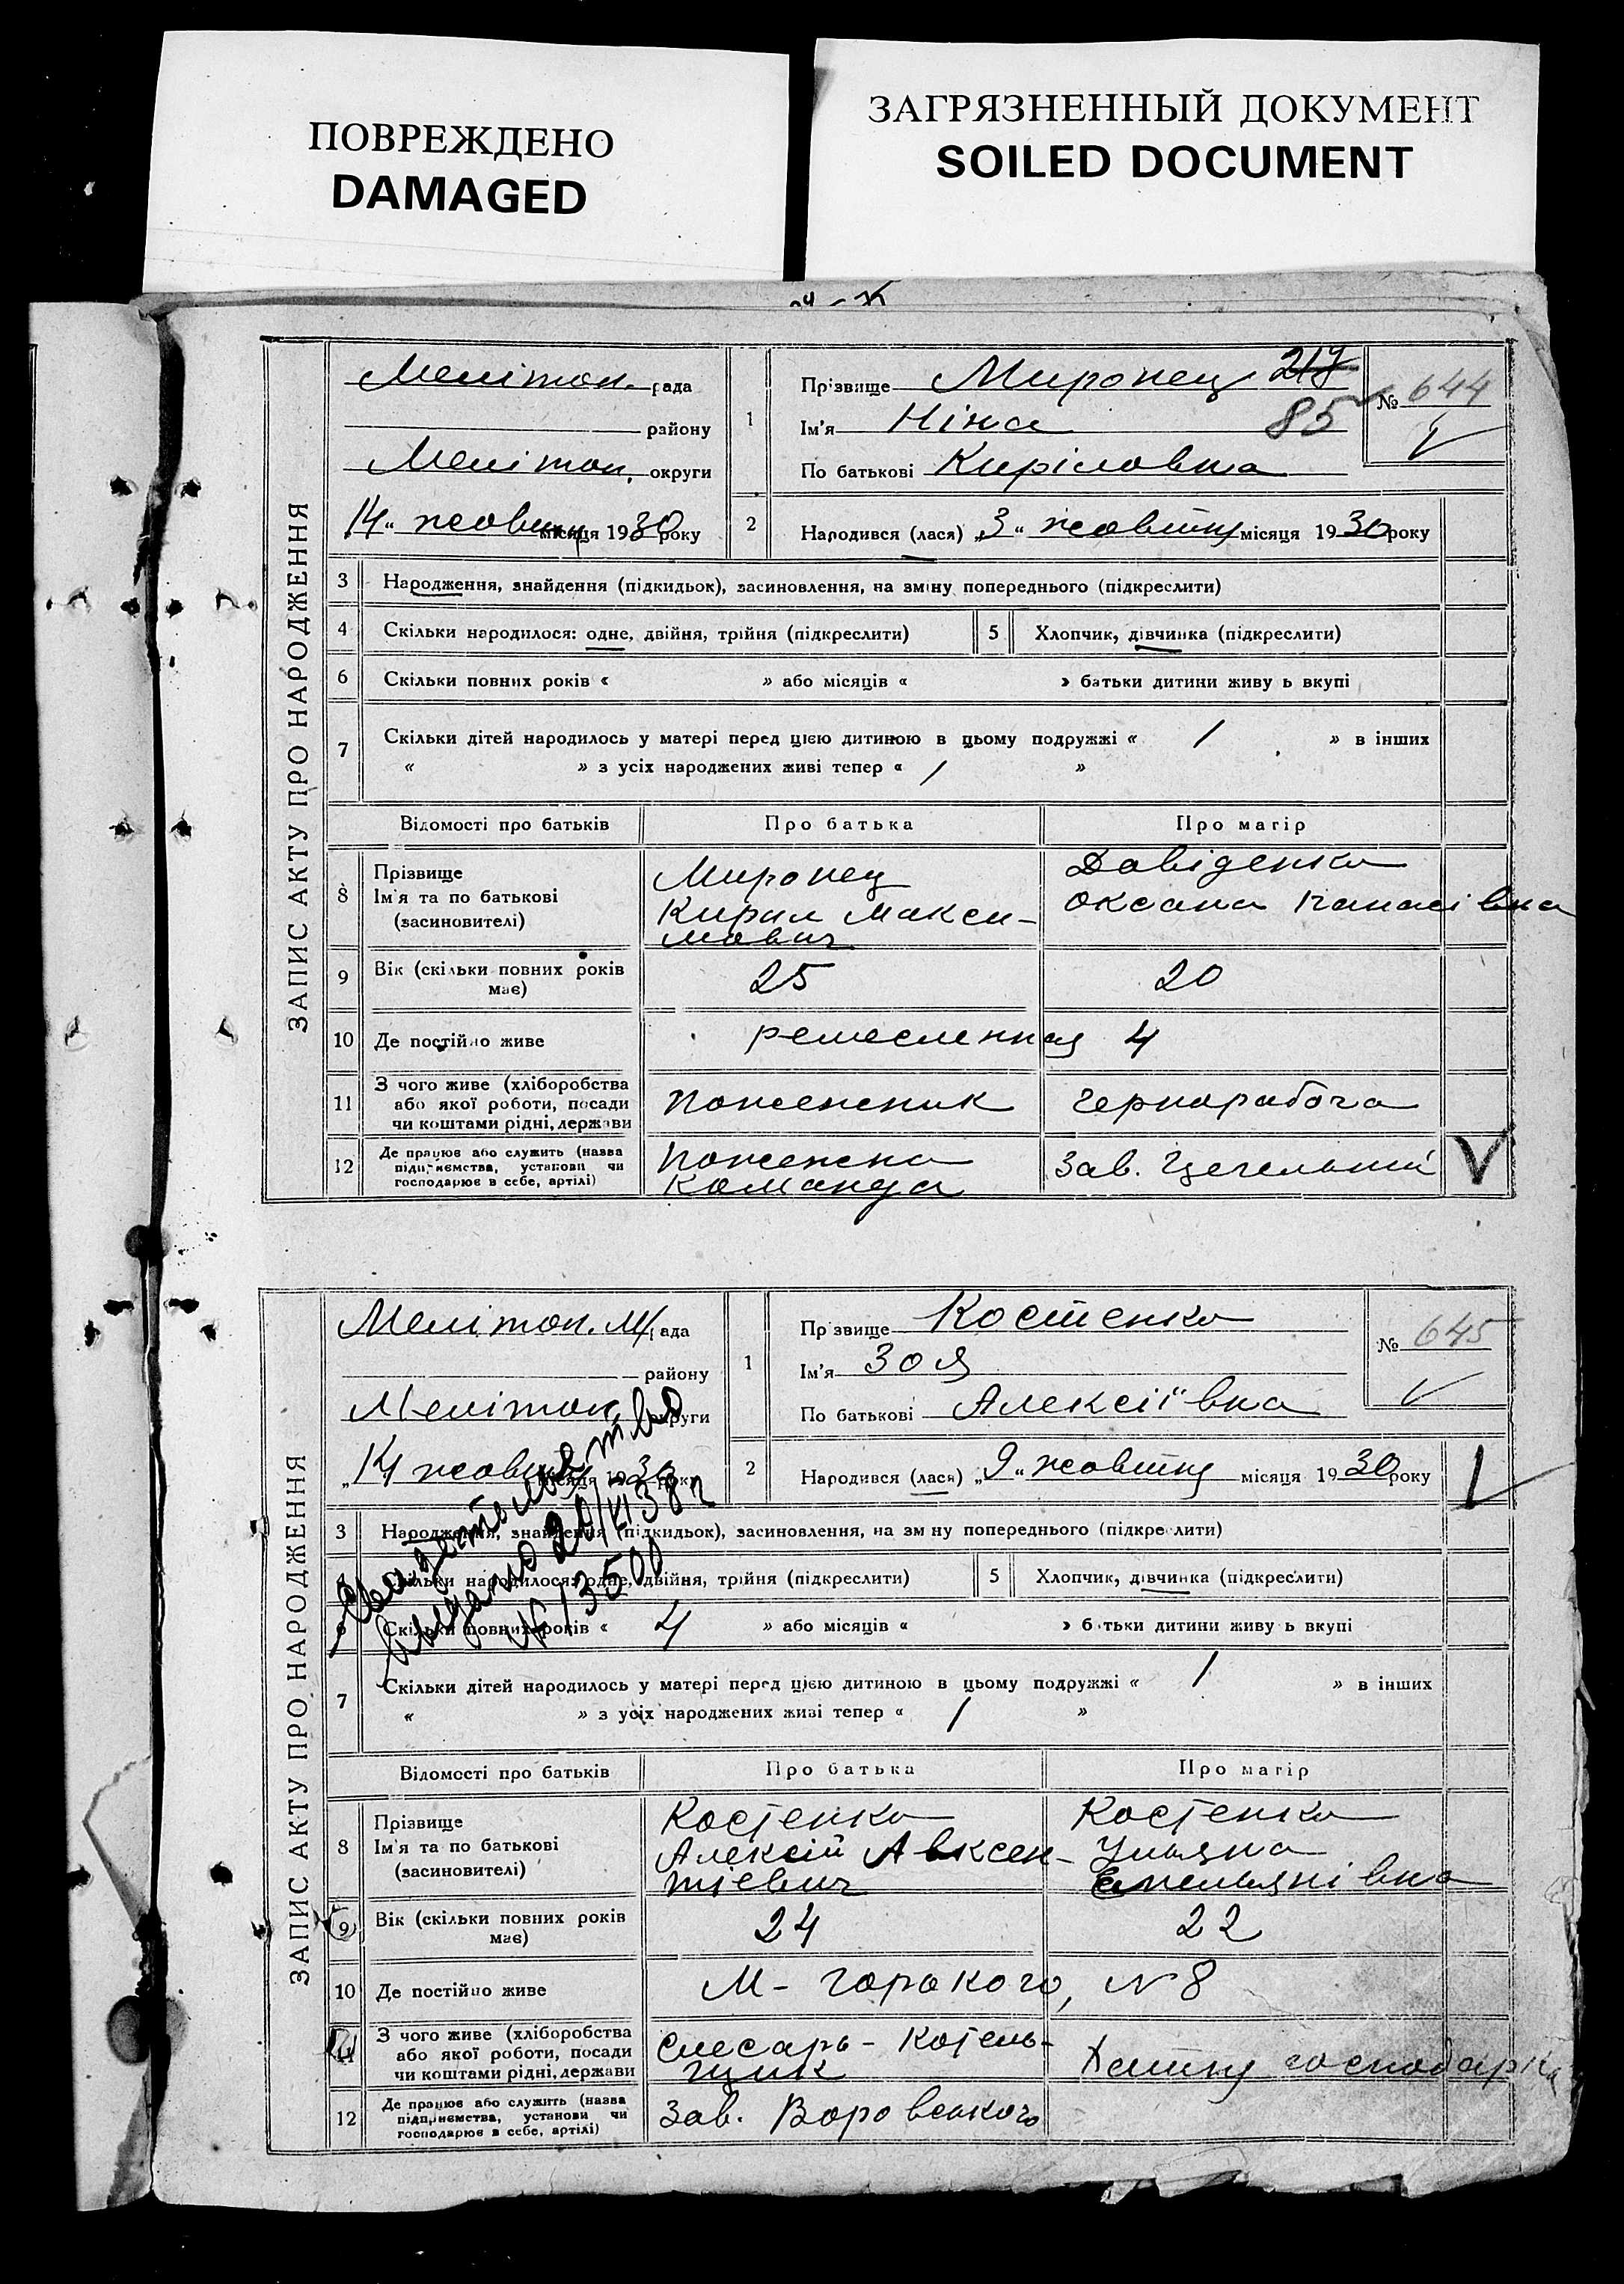 ПОВРЕЖДЕНО
DAMAGED
ЗАГРЯЗНЕННЫЙ ДОКУМЕНТ
SOILED DOCUMENT
ЗАПИС АКТУ ПРО НАРОДЖЕННЯ
Мелітоп. рада
району
Мелітоп. округи
„14“ жовтня місяця 1930 року
1
Прізвище Миронец 217
Ім'я Ніна 85
По батькові Кирiловна
№ 644
2 Народився (лася) „3“ жовтня місяця 1930 року
3 Народження, знайдення (підкидьок), засиновлення, на зміну попереднього (підкреслити)
4 Скільки народилося: одне, двійня, трійня (підкреслити) 5 Хлопчик, дівчинка (підкреслити)
6 Скільки повних років « » або місяців « » батьки дитини живу ь вкупі
7 Скільки дітей народилось у матері перед цією дитиною в цьому подружжі « 1 » в інших
« » з усіх народжених живі тепер « 1 »
Відомості про батьків Про батька Про матір
8 Прізвище
Ім'я та по батькові
(засиновителі)
Миронец
Кирил Макси-
мович
Давіденко
Оксана Панасівна
9 Вік (скільки повних років
має)
25 20
10 Де постійно живе ремесленная 4
11 З чого живе (хліборобства
або якої роботи, посади
чи коштами рідні, держави
пожежник чернорабоча
12 Де працює або служить (назва
підприємства, установи чи
господарює в себе, артілі)
Пожежна
команда
Зав. Цегельний
V
ЗАПИС АКТУ ПРО НАРОДЖЕННЯ
Мелітоп. М/рада
району
Мелітоп. округи
„14 жовтня місяця 1930 року
1
Пр звище Костенко
Ім'я Зоя
По батькові Алексіївна
№ 645
2 Народився (лася) „9“ жовтня місяця 1930 року
Свидетельство
выдано 20/VI 38 г
№ 13500
3 Народження, знайдення (підкидьок), засиновлення, на зм ну попереднього (підкре лити)
Скільки народилося: одне, двійня, трійня (підкреслити) 5 Хлопчик, дівчинка (підкреслити)
6 Скільки повних років « 4 » або місяців « » б тьки дитини живу ь вкупі
7 Скільки дітей народилось у матері перед цією дитиною в цьому подружжі « 1 » в інших
« » з усіх народжених живі тепер « 1 »
Відомості про батьків Про батька Про матір
8 Прізвище
Ім'я та по батькові
(засиновителі)
Костенко
Алексій Авксен-
тієвич
Костенко
Ульяна
Емельянівна
9 Вік (скільки повних років
має)
24 22
10 Де постійно живе М-горького, N 8
11 З чого живе (хліборобства
або якої роботи, посади
чи коштами рідні, держави
Слесарь-котель-
щик
Хатня господарка
12 Де працює або служить (назва
підприємства, установи чи
господарює в себе, артілі)
Зав. Воровського